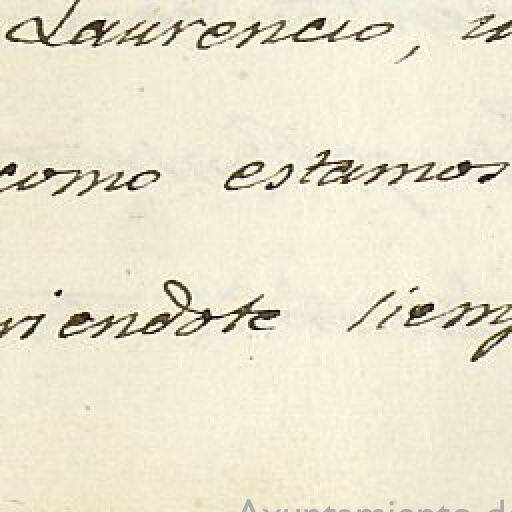 Laurencio,
como estamos
riendote siemp
Ayuntamiento de